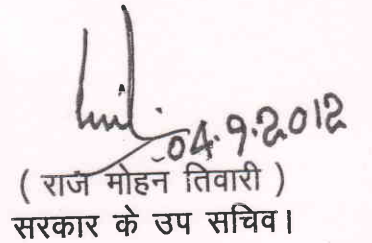 04.9.2012
( राज मोहन तिवारी )
सरकार के उप सचिव।